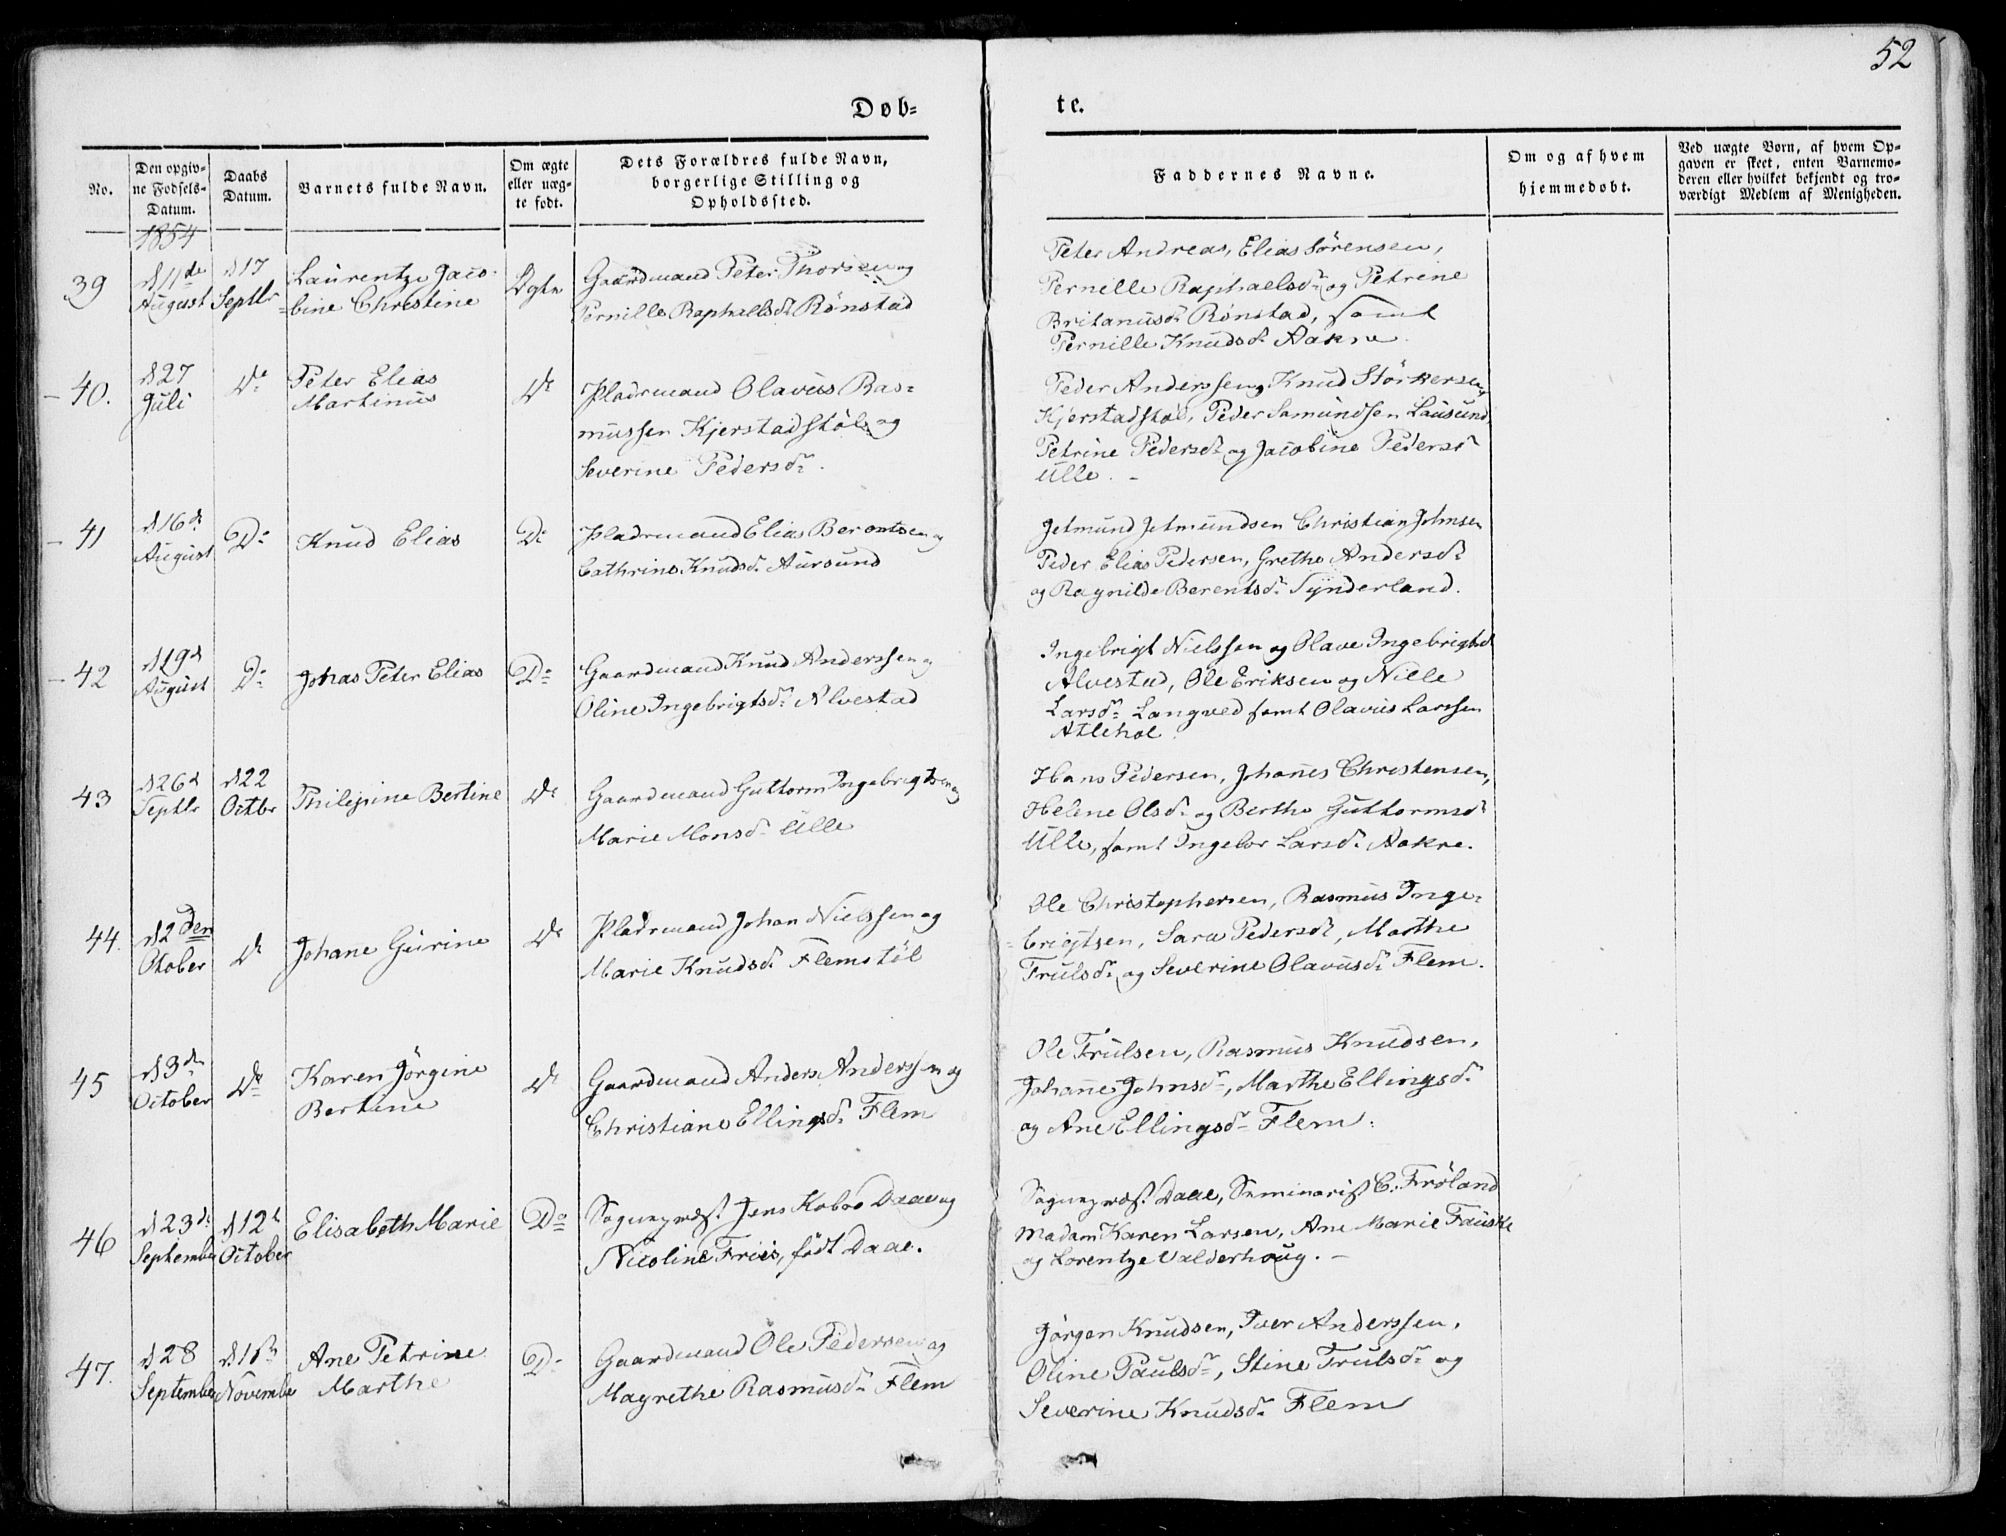 52
Døb-
te.
No.
Den opgiv-
ne Fødsels-
Datum.
Daabs
Datum.
Barnets fulde Navn.
Om ægte
eller uæg-
te født.
Dets Forældres fulde Navn,
borgerlige Stilling og
Opholdssted.
Faddernes Navne.
Om og af hvem
hjemmedøbt.
Ved uægte Børn, af hvem Op-
gaven er skeet, enten Barnemo-
deren eller hvilket bekjendt og tro-
værdigt Medlem af Menigheden.
1854
39
d 11de
August
d 17
Septbr
Laurentze Jaco-
bine Christine
Ægte
Gaardmand Peter Thorsen og
Pernille Raphaelsdr Rønstad
Peter Andreas, Elias Sørensen,
Pernelle Raphaelsdr og Petrine
Britanusdr Rønstad, samt
Pernille Knudsdr Aakre.
40.
d 27
Juli
Do
Peter Elias
Martinus
Do
Pladsmand Olavus Ras-
mussen Kjerstadstøl og
Severine Pedersdr.
Peder Anderssen og Knud Størkersen,
Kjerstadstøl, Peder Samundsen Lausund,
Petrine Pedersdr og Jacobine Pedersdr
Ulle. -
41
d 16de
August
Do
Knud Elias
Do
Pladsmand Elias Berentsen og
Cathrine Knudsdr Aursund
Jetmund Jetmundsen Christian Johnsen
Peder Elias Pedersen, Grethe Andersdr
og Ragnilde Berentsdr Synderland.
42
d 19d
August
Do
Johas Peter Elias
Do
Gaardmand Knud Anderssen og
Oline Ingebrigtsdr Alvestad
Ingebrigt Nielssen og Olave Ingebrigtsd
Alvestad, Ole Eriksen og Nille
Larsdr Langved samt Olavus Larssen
Atlehol.
43
d 26d
Septbr
d 22
Octbr
Philipine Bertine
Do
Gaardmand Guttorm Ingebrigtsen og
Marie Monsdr Ulle
Hans Pedersen, Johanes Christensen,
Helene Olsdr og Berthe Guttormsdr
Ulle, samt Ingebor Larsdr Aakre.
44.
d 2den
Otober
Do
Johane Gurine
Do
Pladsmand Johan Nielssen og
Marie Knudsdr Flemstøl
Ole Christophersen, Rasmus Inge-
brigtsen, Sara Pedersdr, Marthe
Trulsdr og Severine Olavusdr Flem.
45
d 3de
October
Do
Karen Jørgine
Bertine
Do
Gaardmand Anders Anderssen og
Christiane Ellingsdr Flem
Ole Trulsen, Rasmus Knudsen,
Johane Johnsdr, Marthe Ellingsdr
og Ane Ellingsdr Flem.
46
d 23de
September
d 12t
October
Elisabeth Marie
Do
Sognepræst Jens Kobro Daae og
Nicoline Friis, født Daae.
Sognepræst Daae, Seminarist C. Frøland
Madam Karen Larsen, Ane Marie Fauske
og Lorentze Valderhoug. -
47.
d 28
September
November
Ane Petrine
Marthe
Do
Gaardmand Ole Pedersen og
Magrethe Rasmusdr Flem
Jørgen Knudsen, Iver Anderssen,
Oline Paulsdr, Stine Trulsdr og
Severine Knudsdr Flem